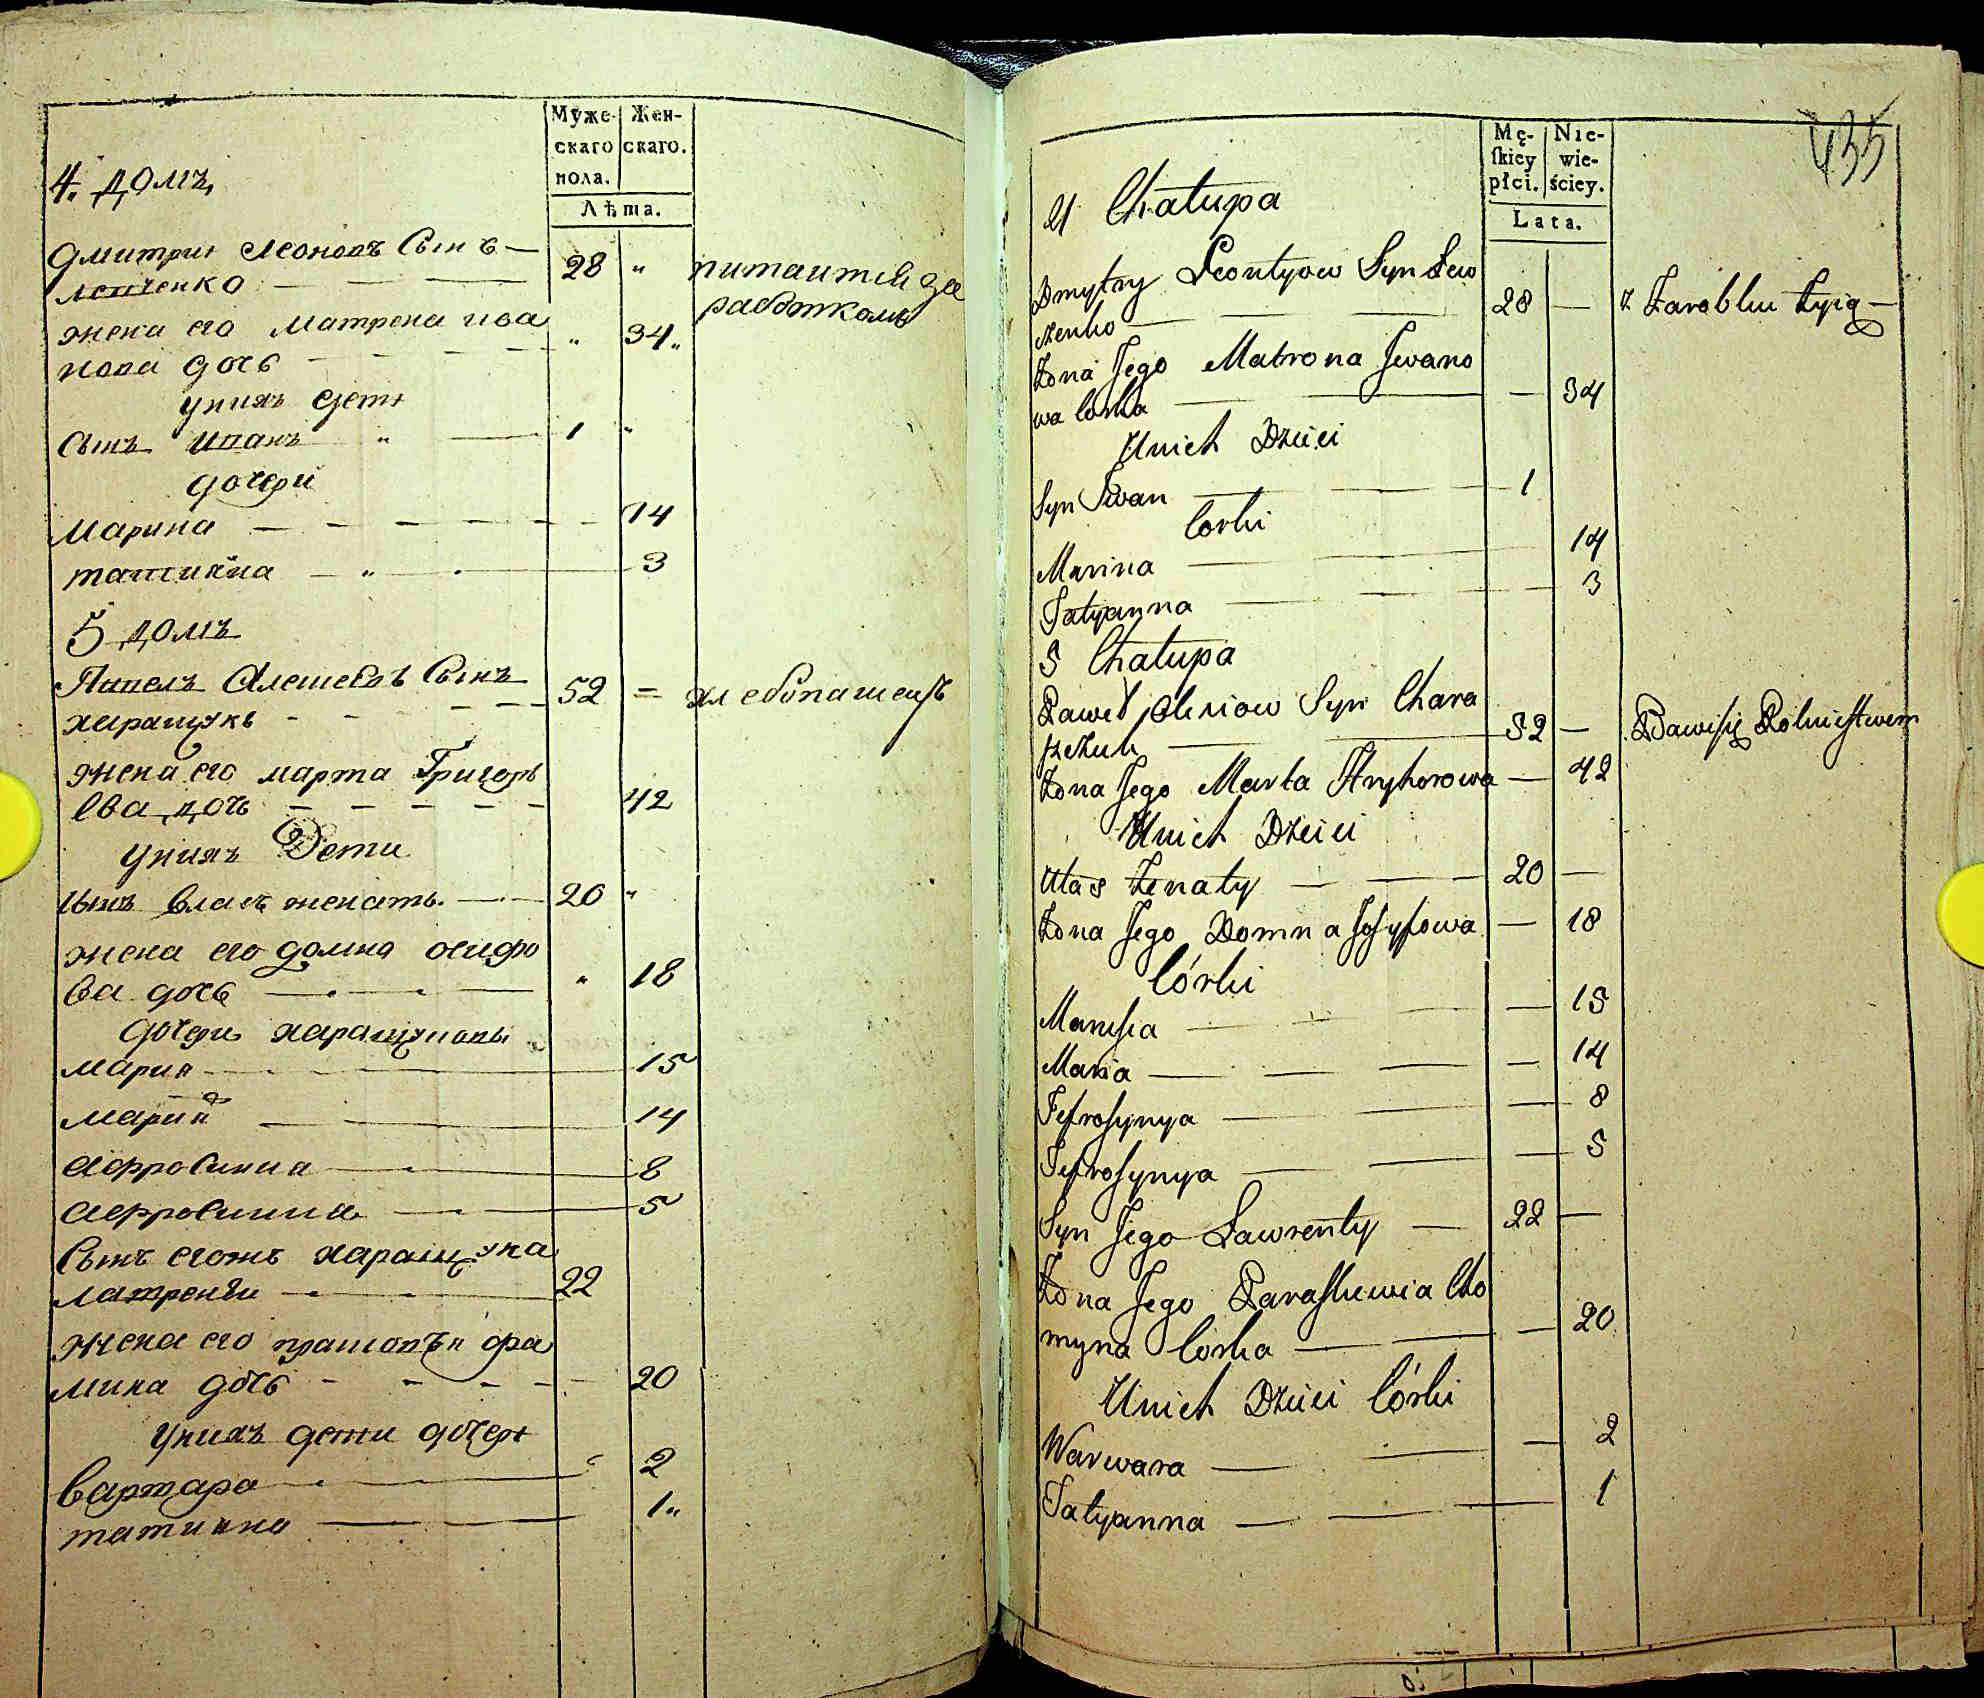 Муже-
скаго
пола.
Жен-
скаго.
Лѣта.
4. домъ
Дмитри Леоновъ Сынъ —
Левченко — — 28 " питаится за
работкомъ
жена его Матрена ива
нова дочь — — — — " 34 "
унихъ дети
Сынъ Иванъ " — 1 "
дочери
Марина — — — — 14
татиана — " — 3
5 домъ
Павелъ Алешевъ Сынъ
харащукъ — — — 52 = хлебопашецъ
жена его марта Григорь
ева дочь — — — — — 42
унихъ Дети
сынъ власъ женатъ. — 20 "
жена его домна осифо
ва дочь — — — " 18
дочери харащуковы
мария — — — 15
мария — — 14
Аефросиниа — — 8
аефросиниа — — 5
Сынъ егожъ харащука
лаврентеи — — 22
жена его прасковья фа
мина дочь — — — — 20
унихъ дети дочери
варвара — — 2
татиана — — 1 "
435
Mę-
ſkiey
płci.
Nie-
wie-
ściey.
Lata.
4 Chałupa
Dmytry Leontyow Syn Lew
czenko — — — 28 — z Zarobku żyią —
Żona Jego Matrona Jwano
wa Corka — — — — 34
Unich Dzieci
Syn Jwan — — — 1
Corki
Marina — — — 14
Tatyanna — — — 3
5 Chałupa
Paweł Olexiow Syn Chara
szczuk — — 52 — Bawi się Rolnictwem
Żona Jego Marta Hryhorowa — 42
Unich Dzieci
Ułas Żenaty — — — 20 —
Żona Jego Domna Josyfowa — 18
Córki
Marysia — — — — 15
Maria — — — — 14
Fefrosynya — — — 8
Fefrosynya — — — 5
Syn Jego Lawrenty — 22 —
Żona Jego Paraskiewia Cho
myna Corka — — — 20
Unich Dzieci Córki
Warwara — — — 2
Tatyanna — — — 1